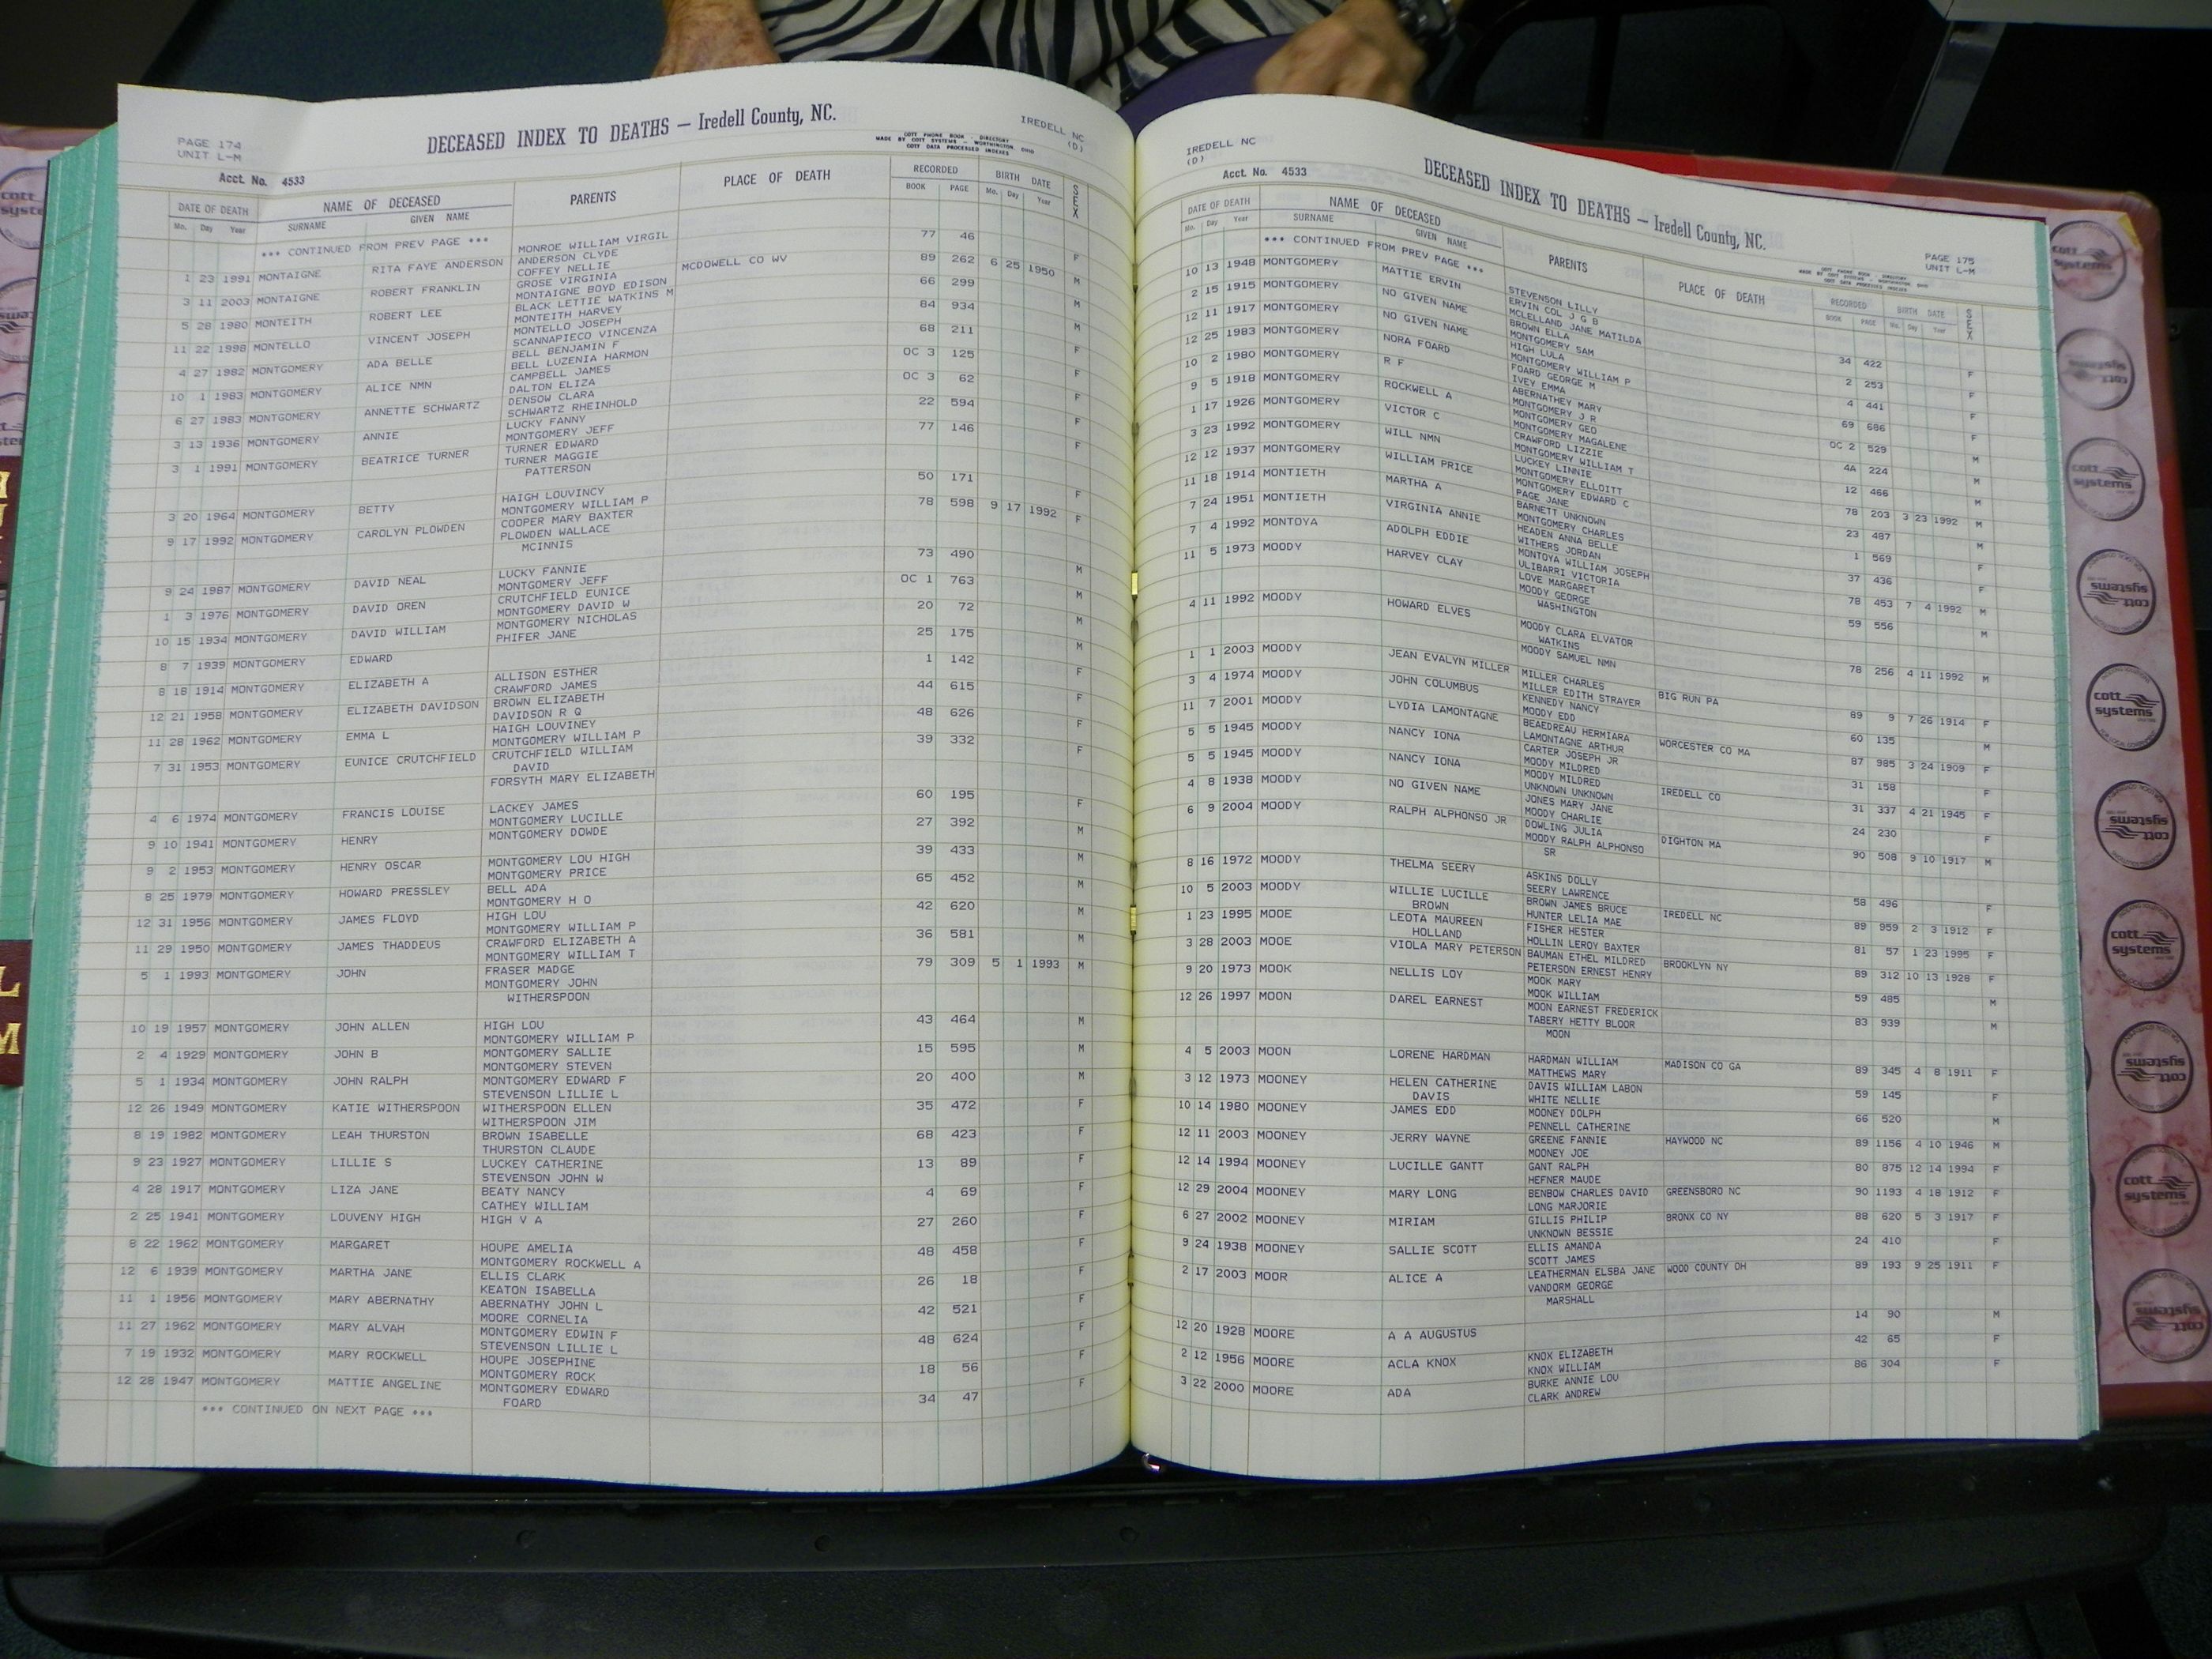 PAGE 174
UNIT L-M
DECEASED INDEX TO DEATHS — Iredell County, NC.
COTT PHONE BOOK - DIRECTORY
MADE BY COTT SYSTEMS - WORTHINGTON, OHIO
COTT DATA PROCESSED INDEXES
IREDELL NC
(D)
Acct. No. 4533
DATE OF DEATH NAME OF DECEASED PARENTS PLACE OF DEATH RECORDED BIRTH DATE SEX
Mo. Day Year SURNAME GIVEN NAME BOOK PAGE Mo. Day Year
*** CONTINUED FROM PREV PAGE *** MONROE WILLIAM VIRGIL
1 23 1991 MONTAIGNE RITA FAYE ANDERSON ANDERSON CLYDE 77 46 F
COFFEY NELLIE
3 11 2003 MONTAIGNE ROBERT FRANKLIN GROSE VIRGINIA MCDOWELL CO WV 89 262 6 25 1950 M
MONTAIGNE BOYD EDISON
5 28 1980 MONTEITH ROBERT LEE BLACK LETTIE WATKINS M 66 299 M
MONTEITH HARVEY
11 22 1998 MONTELLO VINCENT JOSEPH MONTELLO JOSEPH 84 934 M
SCANNAPIECO VINCENZA
4 27 1982 MONTGOMERY ADA BELLE BELL BENJAMIN F 68 211 F
BELL LUZENIA HARMON
10 1 1983 MONTGOMERY ALICE NMN CAMPBELL JAMES OC 3 125 F
DALTON ELIZA
6 27 1983 MONTGOMERY ANNETTE SCHWARTZ DENSOW CLARA OC 3 62 F
SCHWARTZ RHEINHOLD
3 13 1936 MONTGOMERY ANNIE LUCKY FANNY 22 594 F
MONTGOMERY JEFF
3 1 1991 MONTGOMERY BEATRICE TURNER TURNER EDWARD 77 146 F
TURNER MAGGIE
PATTERSON
3 20 1964 MONTGOMERY BETTY HAIGH LOUVINCY 50 171 F
MONTGOMERY WILLIAM P
9 17 1992 MONTGOMERY CAROLYN PLOWDEN COOPER MARY BAXTER 78 598 9 17 1992 F
PLOWDEN WALLACE
MCINNIS
9 24 1987 MONTGOMERY DAVID NEAL LUCKY FANNIE 73 490 M
MONTGOMERY JEFF
1 3 1976 MONTGOMERY DAVID OREN CRUTCHFIELD EUNICE OC 1 763 M
MONTGOMERY DAVID W
10 15 1934 MONTGOMERY DAVID WILLIAM MONTGOMERY NICHOLAS 20 72 M
PHIFER JANE
8 7 1939 MONTGOMERY EDWARD 25 175 M
8 18 1914 MONTGOMERY ELIZABETH A ALLISON ESTHER 1 142 F
CRAWFORD JAMES
12 21 1958 MONTGOMERY ELIZABETH DAVIDSON BROWN ELIZABETH 44 615 F
DAVIDSON R Q
11 28 1962 MONTGOMERY EMMA L HAIGH LOUVINEY 48 626 F
MONTGOMERY WILLIAM P
7 31 1953 MONTGOMERY EUNICE CRUTCHFIELD CRUTCHFIELD WILLIAM 39 332 F
DAVID
FORSYTH MARY ELIZABETH
4 6 1974 MONTGOMERY FRANCIS LOUISE LACKEY JAMES 60 195 F
MONTGOMERY LUCILLE
9 10 1941 MONTGOMERY HENRY MONTGOMERY DOWDE 27 392 M
9 2 1953 MONTGOMERY HENRY OSCAR MONTGOMERY LOU HIGH 39 433 M
MONTGOMERY PRICE
8 25 1979 MONTGOMERY HOWARD PRESSLEY BELL ADA 65 452 M
MONTGOMERY H O
12 31 1956 MONTGOMERY JAMES FLOYD HIGH LOU 42 620 M
MONTGOMERY WILLIAM P
11 29 1950 MONTGOMERY JAMES THADDEUS CRAWFORD ELIZABETH A 36 581 M
MONTGOMERY WILLIAM T
5 1 1993 MONTGOMERY JOHN FRASER MADGE 79 309 5 1 1993 M
MONTGOMERY JOHN
WITHERSPOON
10 19 1957 MONTGOMERY JOHN ALLEN HIGH LOU 43 464 M
MONTGOMERY WILLIAM P
2 4 1929 MONTGOMERY JOHN B MONTGOMERY SALLIE 15 595 M
MONTGOMERY STEVEN
5 1 1934 MONTGOMERY JOHN RALPH MONTGOMERY EDWARD F 20 400 M
STEVENSON LILLIE L
12 26 1949 MONTGOMERY KATIE WITHERSPOON WITHERSPOON ELLEN 35 472 F
WITHERSPOON JIM
8 19 1982 MONTGOMERY LEAH THURSTON BROWN ISABELLE 68 423 F
THURSTON CLAUDE
9 23 1927 MONTGOMERY LILLIE S LUCKEY CATHERINE 13 89 F
STEVENSON JOHN W
4 28 1917 MONTGOMERY LIZA JANE BEATY NANCY 4 69 F
CATHEY WILLIAM
2 25 1941 MONTGOMERY LOUVENY HIGH HIGH V A 27 260 F
8 22 1962 MONTGOMERY MARGARET HOUPE AMELIA 48 458 F
MONTGOMERY ROCKWELL A
12 6 1939 MONTGOMERY MARTHA JANE ELLIS CLARK 26 18 F
KEATON ISABELLA
11 1 1956 MONTGOMERY MARY ABERNATHY ABERNATHY JOHN L 42 521 F
MOORE CORNELIA
11 27 1962 MONTGOMERY MARY ALVAH MONTGOMERY EDWIN F 48 624 F
STEVENSON LILLIE L
7 19 1932 MONTGOMERY MARY ROCKWELL HOUPE JOSEPHINE 18 56 F
MONTGOMERY ROCK
12 28 1947 MONTGOMERY MATTIE ANGELINE MONTGOMERY EDWARD 34 47
FOARD
*** CONTINUED ON NEXT PAGE ***
IREDELL NC
(D)
DECEASED INDEX TO DEATHS — Iredell County, NC.
PAGE 175
UNIT L-M
Acct. No. 4533
DATE OF DEATH NAME OF DECEASED PARENTS PLACE OF DEATH RECORDED BIRTH DATE SEX
Mo. Day Year SURNAME GIVEN NAME BOOK PAGE Mo. Day Year
*** CONTINUED FROM PREV PAGE *** STEVENSON LILLY
10 13 1948 MONTGOMERY MATTIE ERVIN ERVIN COL J G B 34 422 F
MCLELLAND JANE MATILDA
2 15 1915 MONTGOMERY NO GIVEN NAME BROWN ELLA 2 253 F
MONTGOMERY SAM
12 11 1917 MONTGOMERY NO GIVEN NAME HIGH LULA 4 441 F
MONTGOMERY WILLIAM P
12 25 1983 MONTGOMERY NORA FOARD FOARD GEORGE M 69 686 F
IVEY EMMA
10 2 1980 MONTGOMERY R F ABERNATHEY MARY OC 2 529 M
MONTGOMERY J R
9 5 1918 MONTGOMERY ROCKWELL A MONTGOMERY GEO 4A 224 M
MONTGOMERY MAGALENE
1 17 1926 MONTGOMERY VICTOR C CRAWFORD LIZZIE 12 466 M
MONTGOMERY WILLIAM T
3 23 1992 MONTGOMERY WILL NMN LUCKEY LINNIE 78 203 3 23 1992 M
MONTGOMERY ELLOITT
12 12 1937 MONTGOMERY WILLIAM PRICE MONTGOMERY EDWARD C 23 487 M
PAGE JANE
11 18 1914 MONTIETH MARTHA A BARNETT UNKNOWN 1 569 F
MONTGOMERY CHARLES
7 24 1951 MONTIETH VIRGINIA ANNIE HEADEN ANNA BELLE 37 436 F
WITHERS JORDAN
7 4 1992 MONTOYA ADOLPH EDDIE MONTOYA WILLIAM JOSEPH 78 453 7 4 1992 M
ULIBARRI VICTORIA
11 5 1973 MOODY HARVEY CLAY LOVE MARGARET 59 556 M
MOODY GEORGE
WASHINGTON
4 11 1992 MOODY HOWARD ELVES MOODY CLARA ELVATOR 78 256 4 11 1992 M
WATKINS
MOODY SAMUEL NMN
1 1 2003 MOODY JEAN EVALYN MILLER MILLER CHARLES BIG RUN PA 89 9 7 26 1914 F
MILLER EDITH STRAYER
3 4 1974 MOODY JOHN COLUMBUS KENNEDY NANCY 60 135 M
MOODY EDD
11 7 2001 MOODY LYDIA LAMONTAGNE BEAEDREAU HERMIARA WORCESTER CO MA 87 985 3 24 1909 F
LAMONTAGNE ARTHUR
5 5 1945 MOODY NANCY IONA CARTER JOSEPH JR 31 158 F
MOODY MILDRED
5 5 1945 MOODY NANCY IONA MOODY MILDRED IREDELL CO 31 337 4 21 1945 F
UNKNOWN UNKNOWN
4 8 1938 MOODY NO GIVEN NAME JONES MARY JANE 24 230 F
MOODY CHARLIE
6 9 2004 MOODY RALPH ALPHONSO JR DOWLING JULIA DIGHTON MA 90 508 9 10 1917 M
MOODY RALPH ALPHONSO
SR
8 16 1972 MOODY THELMA SEERY ASKINS DOLLY 58 496 F
SEERY LAWRENCE
10 5 2003 MOODY WILLIE LUCILLE BROWN JAMES BRUCE IREDELL NC 89 959 2 3 1912 F
BROWN HUNTER LELIA MAE
1 23 1995 MOOE LEOTA MAUREEN FISHER HESTER 81 57 1 23 1995 F
HOLLAND HOLLIN LEROY BAXTER
3 28 2003 MOOE VIOLA MARY PETERSON BAUMAN ETHEL MILDRED BROOKLYN NY 89 312 10 13 1928 F
PETERSON ERNEST HENRY
9 20 1973 MOOK NELLIS LOY MOOK MARY 59 485 M
MOOK WILLIAM
12 26 1997 MOON DAREL EARNEST MOON EARNEST FREDERICK 83 939 M
TABERY HETTY BLOOR
MOON
4 5 2003 MOON LORENE HARDMAN HARDMAN WILLIAM MADISON CO GA 89 345 4 8 1911 F
MATTHEWS MARY
3 12 1973 MOONEY HELEN CATHERINE DAVIS WILLIAM LABON 59 145 F
DAVIS WHITE NELLIE
10 14 1980 MOONEY JAMES EDD MOONEY DOLPH 66 520 M
PENNELL CATHERINE
12 11 2003 MOONEY JERRY WAYNE GREENE FANNIE HAYWOOD NC 89 1156 4 10 1946 M
MOONEY JOE
12 14 1994 MOONEY LUCILLE GANTT GANT RALPH 80 875 12 14 1994 F
HEFNER MAUDE
12 29 2004 MOONEY MARY LONG BENBOW CHARLES DAVID GREENSBORO NC 90 1193 4 18 1912 F
LONG MARJORIE
6 27 2002 MOONEY MIRIAM GILLIS PHILIP BRONX CO NY 88 620 5 3 1917 F
UNKNOWN BESSIE
9 24 1938 MOONEY SALLIE SCOTT ELLIS AMANDA 24 410 F
SCOTT JAMES
2 17 2003 MOOR ALICE A LEATHERMAN ELSBA JANE WOOD COUNTY OH 89 193 9 25 1911 F
VANDORM GEORGE
MARSHALL
12 20 1928 MOORE A A AUGUSTUS 14 90 M
2 12 1956 MOORE ACLA KNOX KNOX ELIZABETH 42 65 F
KNOX WILLIAM
3 22 2000 MOORE ADA BURKE ANNIE LOU 86 304 F
CLARK ANDREW
cott
systems
cott
systems
cott
systems
cott
systems
cott
systems